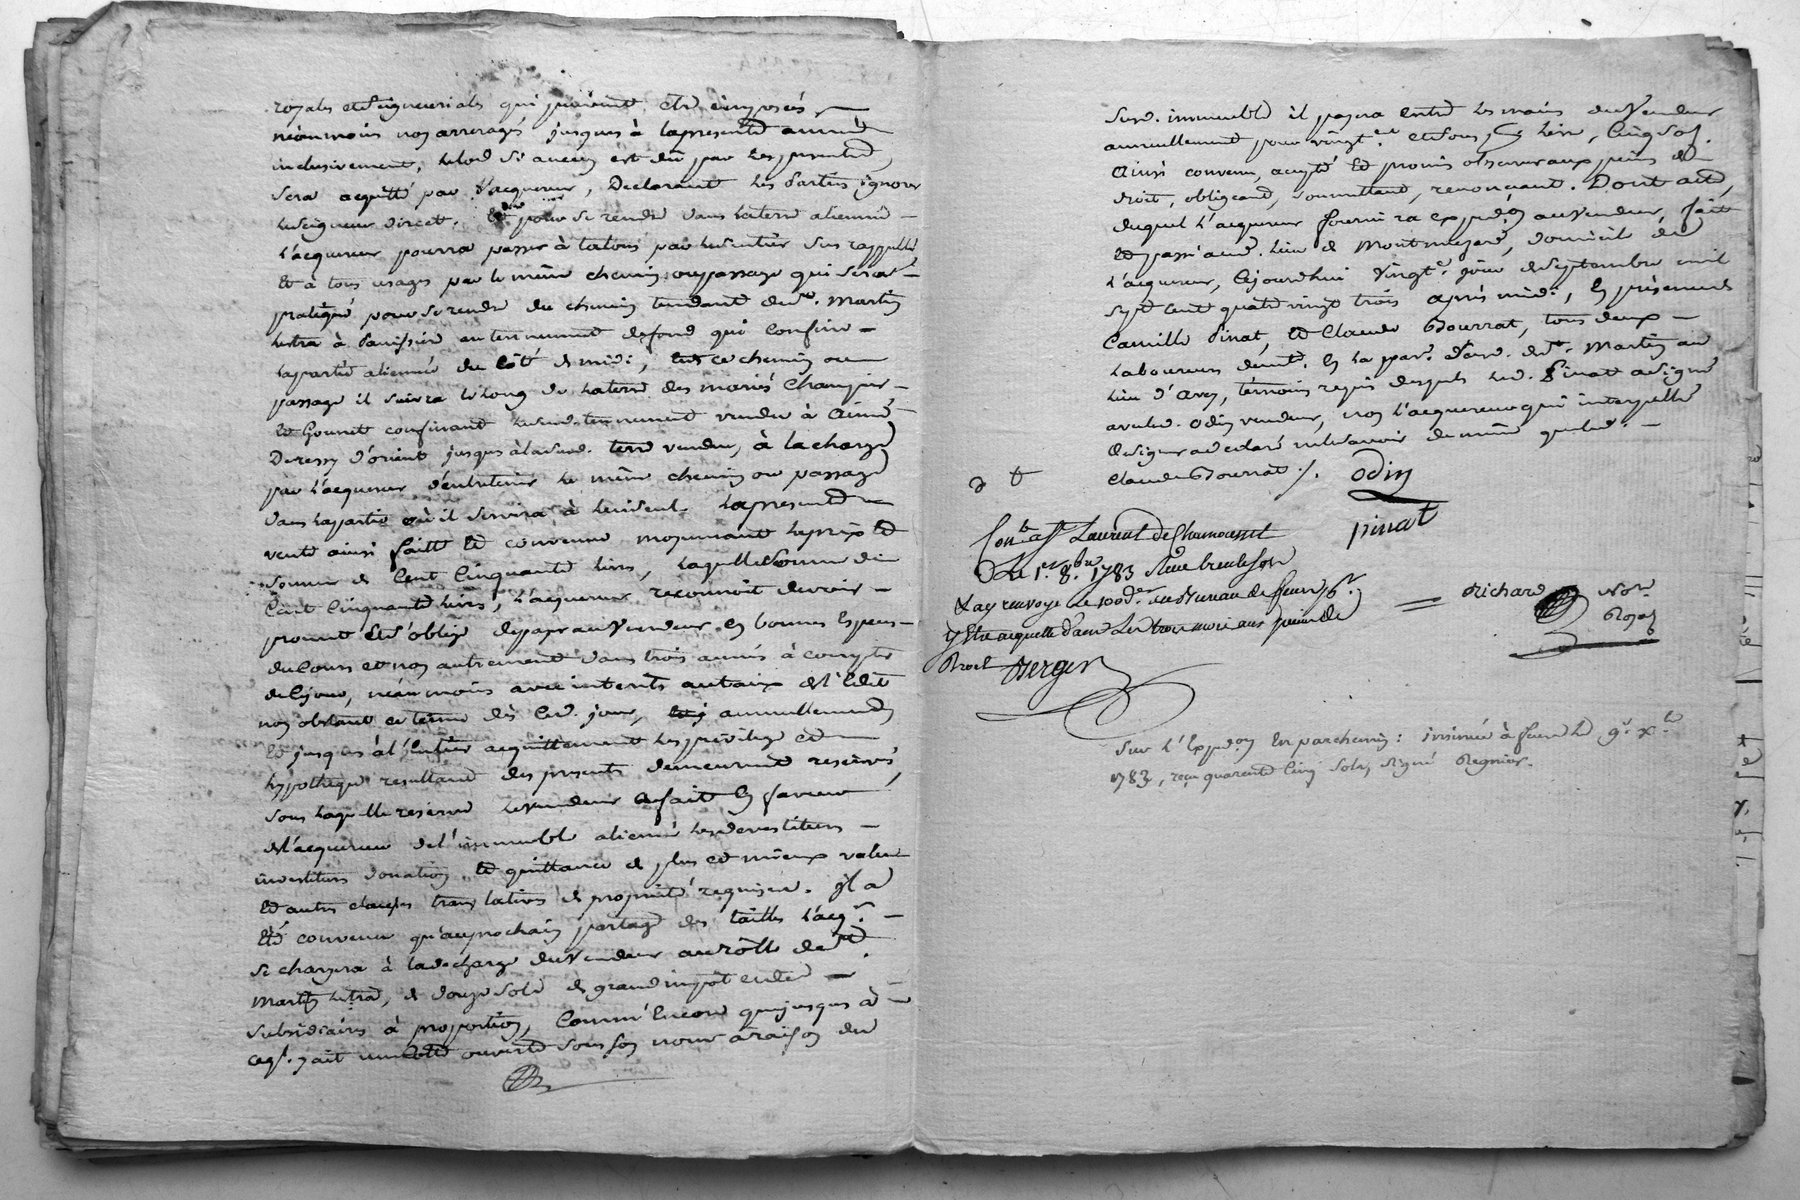 royales et seigneuriales qui pouroient etre imposées
néanmoins non arreragés jusques à la presente année
inclusivement, le lod si aucun est dû par les presentes
sera acquitté par l'acquereur, Declarant les parties ignorer
le seigneur direct. Et pour se rendre dans la terre alienée
l'acquereur pourra passer à talons par le sentier sus rappellé
et à tous usages par le même chemin ou passage qui sera
pratiqué pour se rendre du chemin tendant de st. Martin
lestra à Panissiere au tennement de fond qui confine
la partie alienée du côté de midi, ce chemin ou
passage il suivra le long de la terre des mariés Champier
et Gounet confinant led tennement vendu à aimé
Deressy d'orient jusques à lad. terre vendue, à la charge
par l'acquereur d'entretenir le même chemin ou passage
dans la partie où il servira à lui seul. La presente
vente ainsi faitte et convenue moyennant le prix et
somme de Cent Cinquante livres, laquelle somme de
Cent Cinquante livres, l'acquereur reconnoit devoir
promet et s'oblige de payer au Vendeur en bonnes Especes
du Cours et non autrement dans trois années à compter
de Ce jour, néanmoins avec interêts au taux de l'Edit
non obstant ce terme dès Ced. jour, annuellement
et jusques à l'Entier acquittement les privilege et
hypotheque resultant des presentes demeurant reservés,
sous laquelle reserve le vendeur a fait en faveur
de l'acquereur de l'immeuble aliené les devestiture
investiture donation et quittance de plus et mieux value
et autres clauses translatives de proprieté requises. Il a
Eté convenu qu'au prochain partage des tailles l'acq.r
se chargera à la decharge du Vendeur au rôlle de st.
Martin lestra, de douze sols de grand impot et des
subsidiaires à proportion, Comm'Encore que jusques à
ce qu'il y ait une cotte ouverte sous son nom à raison du
Susd. immeuble il payera entre les mains du Vendeur
annuellement pour vingt.e et sous livre, Cinq sols.
Ainsi convenu, accepté et promis observer aux peines de
droit, obligeant, soumettant, renonçant. Dont acte,
duquel l'acquereur fournira expéd.on au Vendeur, fait
et passé aud. lieu de Montmezard, domicile de
l'acquereur, Cejourdhui Vingt.e jour de Septembre mil
sept cent quatre vingt trois après midi, En présence de
Camille Pinat, et Claude Bourrat, tous deux
laboureurs demt. En la par. dud. st. Martin au
lieu d'Avey, témoins requis desquels led. Pinat a signé
avec led. Odin vendeur, non l'acquereur qui interpellé
de signer a declaré ne le savoir de même que led.
Claude Bourrat ./. Odin
pinat
Con.le à St Laurent de Chamousset
Le 1.er 8.bre 1783 Reçu trente sols
& ay renvoyé le vod. au Bureau de feurs p.r
y Etre acquitté dans les trois mois aux peines de
Droit Berger
Richard Not.re
Royal
Sur l'Expéd.on En parchemin : insinué à feurs le 9.e x.bre
1783, reçu quarante Cinq sols, Signé Regnier.